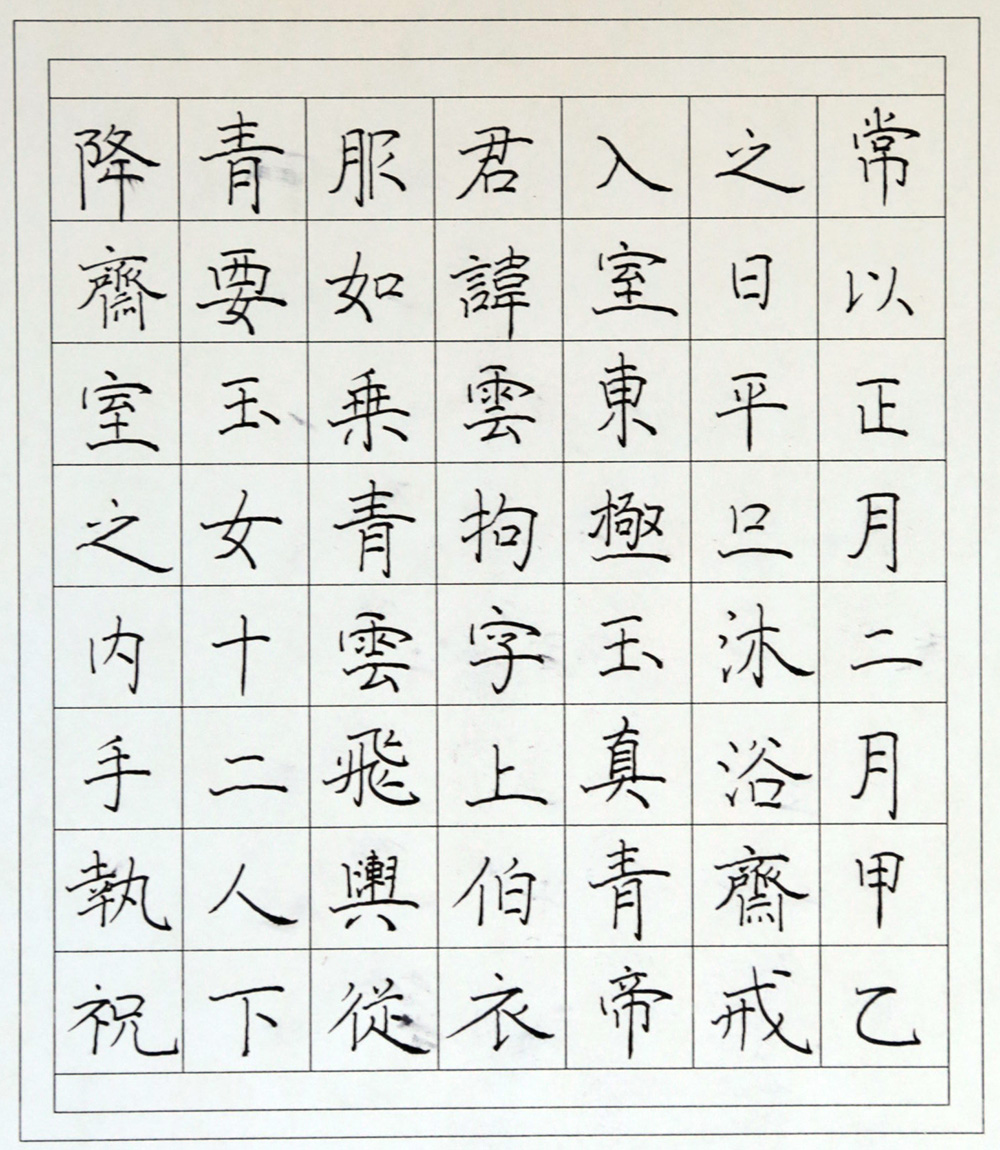 常以正月二月甲乙
之日平旦沐浴齋戒
入室東極玉真青帝
君諱雲拘字上伯衣
服如乗青雲飛輿從
青要玉女十二人下
降齋室之内手執祝